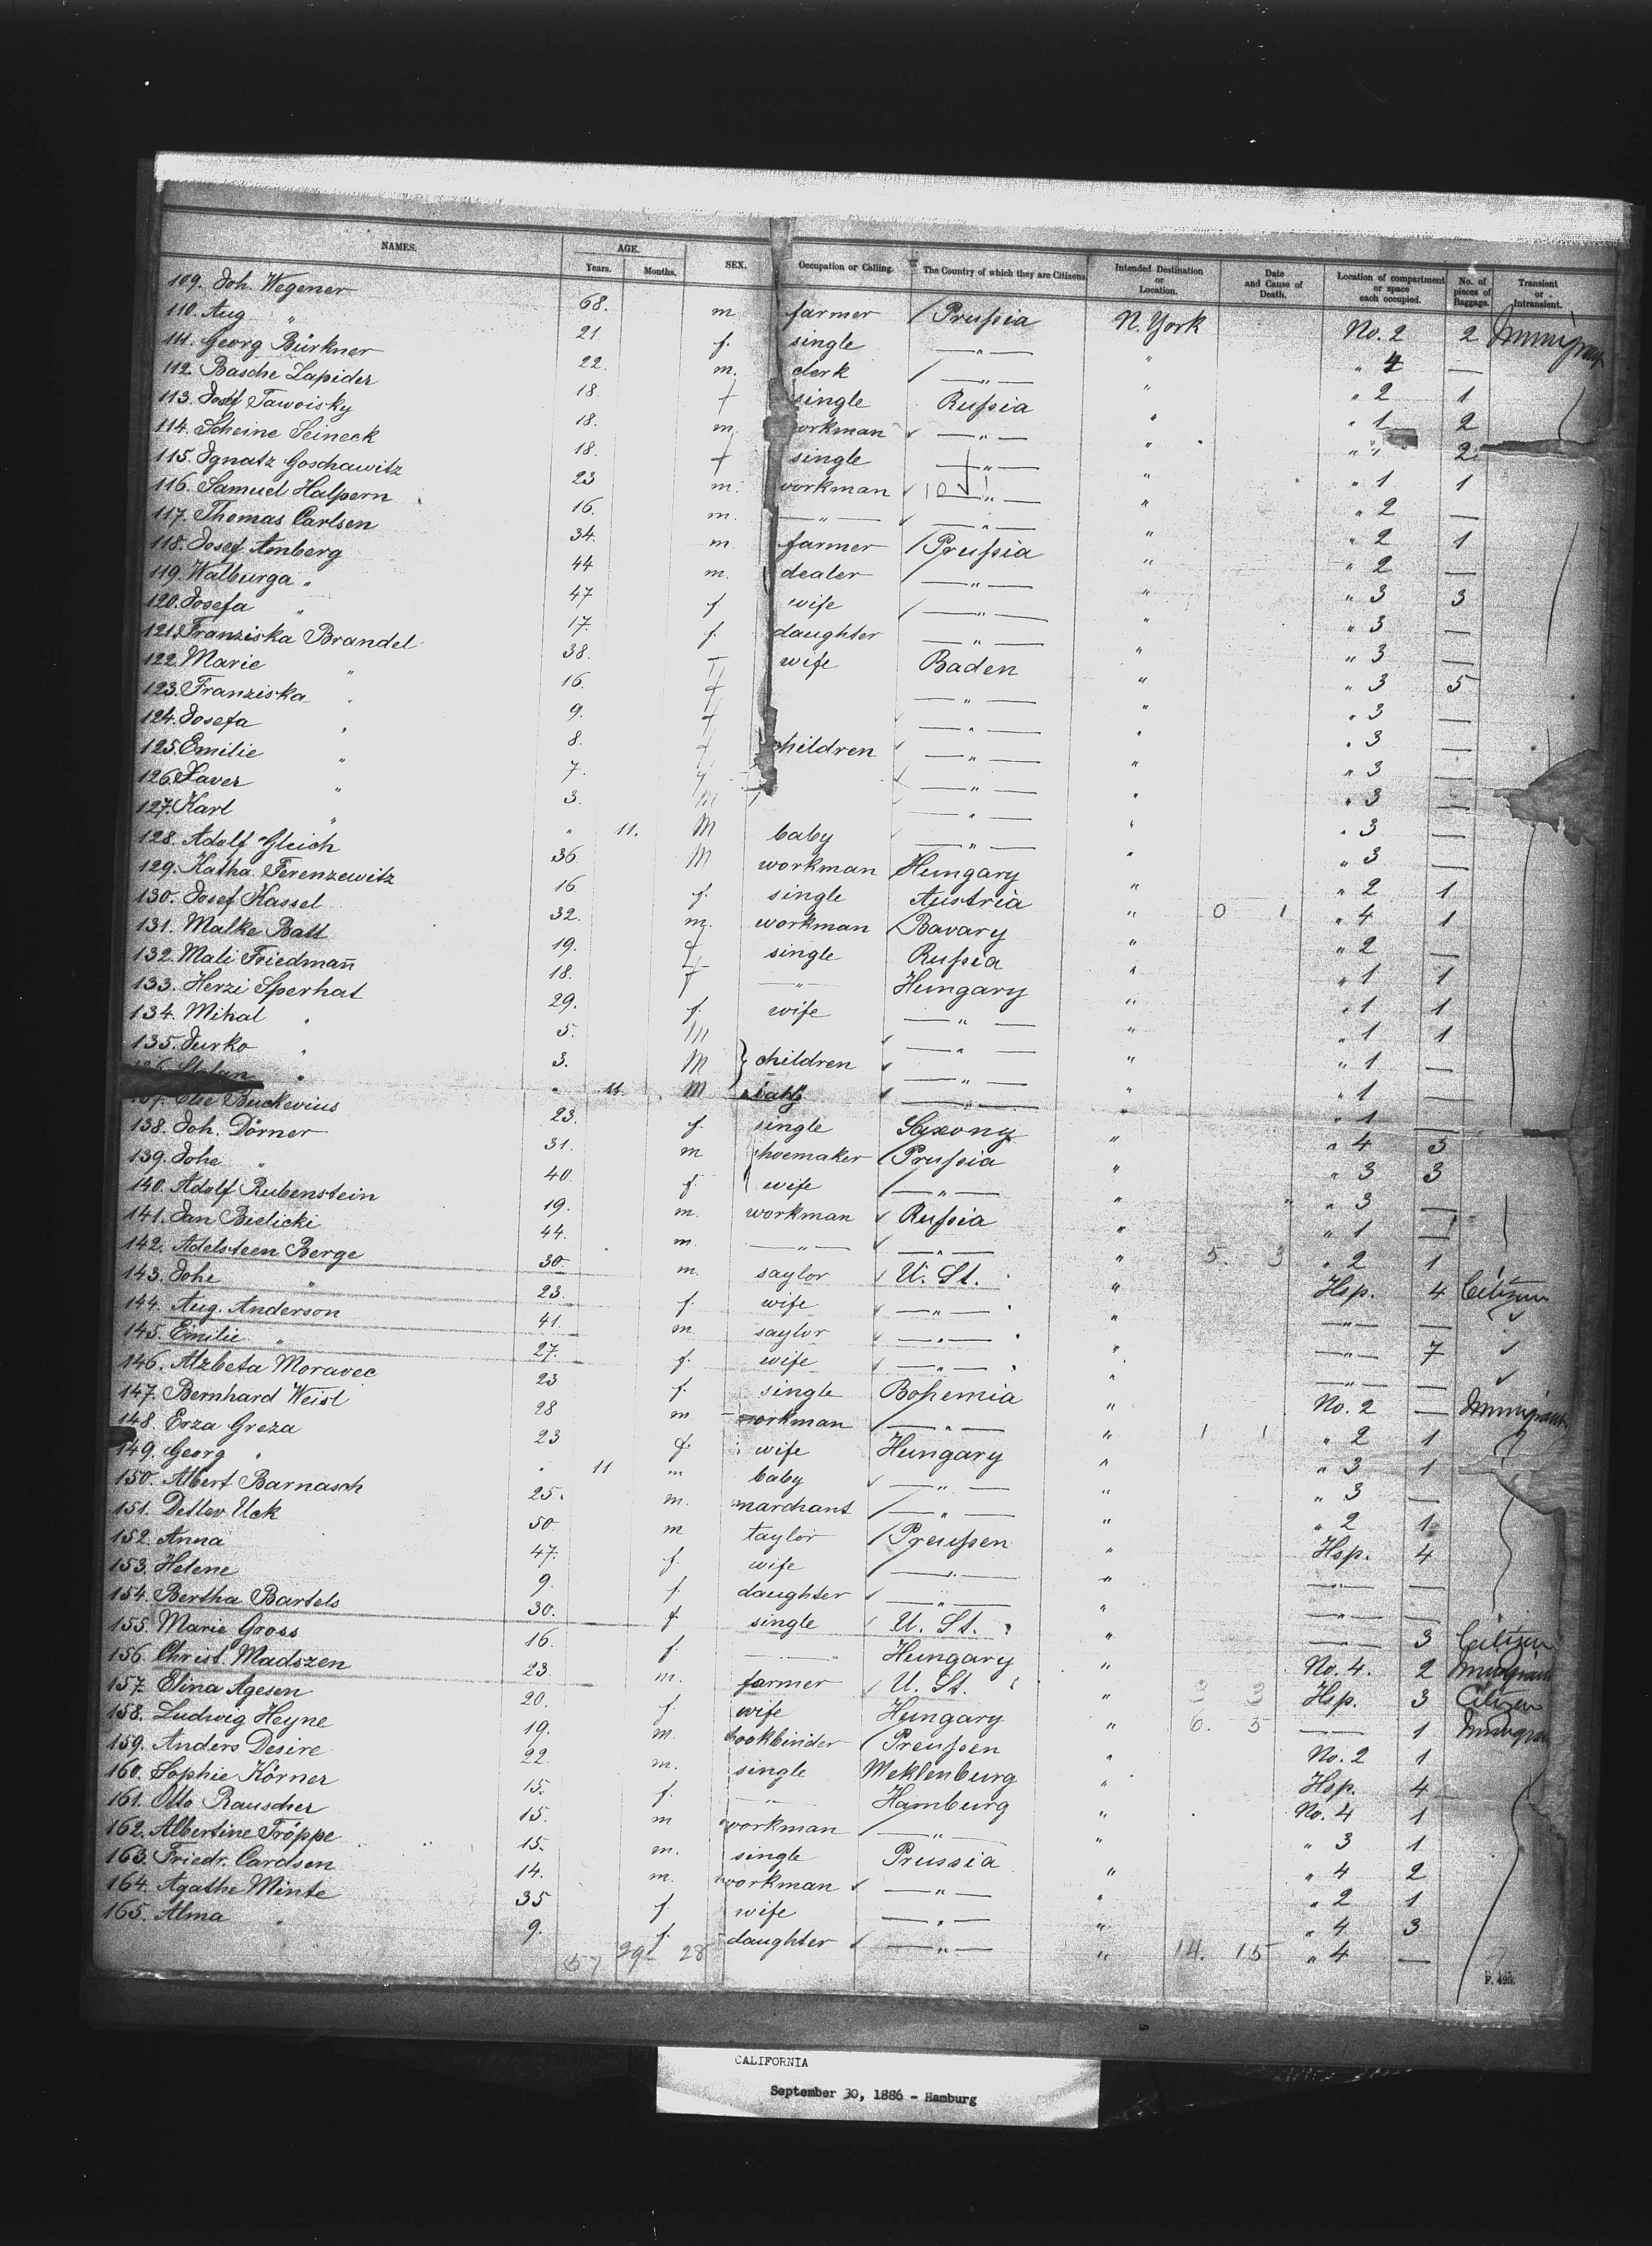 NAMES. AGE. Years. Months. SEX. Occupation or Calling. The Country of which they are Citizens. Intended Destination or Location. Date and Cause of Death. Location of compartment or space each occupied. No. of pieces of Baggage. Transient or Intransient.
109. Joh. Wegener 68. m farmer / Prußia N. York No. 2 2 Immigrant
110. Aug " 21. f. single —"— " " 4 —
111. Georg Bürkner 22. m. clerk / —"— " " 2 1
112. Basche Lapider 18. f single Rußia " " 1 2
113. Josef Tawoisky 18. m workman —"— " " " 2
114. Scheine Seineck 18. f single —"— " " 1 1
115. Ignatz Goschawitz 23 m. workman —"— " " 2 —
116. Samuel Halpern 16. m. —"— —"— " " 2 1
117. Thomas Carlsen 34. m farmer / Prußia " " 2 —
118. Josef Amberg 44 m. dealer / —"— " " 3 3
119. Walburga " 47 f wife / —"— " " 3 —
120. Josefa " 17. f. daughter —"— " " 3 —
121. Franziska Brandel 38. f wife Baden " " 3 5
122. Marie " 16. f —"— " " 3 —
123. Franziska " 9. f —"— " " 3 —
124. Josefa " 8. f children —"— " " 3 —
125. Emilie " 7. f —"— " " 3 —
126. Xaver " 3. M —"— " " 3 —
127. Karl " " 11. M baby —"— " " 3 —
128. Adolf Gleich 36 M workman Hungary " " 2 1
129. Katha Ferenzewitz 16 f. single Austria " 0 1 " 4 1
130. Josef Kassel 32. m. workman / Bavary " " 2 —
131. Malke Batt 19. f single Rußia " " 1 1
132. Mali Friedmann̄ 18. f —"— Hungary " " 1 1
133. Herzi Sperhat 29. f. wife —"— " " 1 1
134. Mihal " 5. M —"— " " 1 —
135. Jurko " 3. M } children —"— " " 1 —
136. Stefan " " 11. M baby —"— " " 1 —
137. Else Buckevius 23. f. single Saxony " " 4 3
138. Joh. Dörner 31. m shoemaker / Prußia " " 3 3
139. Johe " 40. f wife / —"— " " 3 —
140. Adolf Rubenstein 19. m. workman Rußia " " 1 —
141. Jan Bielicki 44. m. —"— —"— " 5. 3 " 2 1
142. Adelsteen Berge 30. m. saylor U. St. " Hsp. 4 Citizen
143. Johe " 23. f. wife —"— " —"— —
144. Aug. Anderson 41. m. saylor —"— " —"— 7
145. Emilie " 27. f. wife —"— " —"— —
146. Alzbeta Moravec 23 f. single Bohemia " No. 2 — Immigrant
147. Bernhard Weisl 28 m workman / —"— " 1 1 " 2 1
148. Erza Greza 23 f. wife Hungary " " 3 1
149. Georg " " 11 m baby —"— " " 3 —
150. Albert Barnasch 25. m. marchant / —"— " " 2 1
151. Detlev Uck 50 m taylor / Preußen " Hsp. 4
152. Anna 47. f. wife / —"— " —"— —
153. Helene 9. f. daughter —"— " —"— —
154. Bertha Bartels 30. f single U. St. " —"— 3 Citizen
155. Marie Gross 16. f —"— Hungary " No. 4. 2 Immigrant
156. Christ. Madszen 23. m. farmer U. St. " 3 3 Hsp. 3 Citizen
157. Elina Agesen 20. f. wife Hungary " 6. 5 —"— 1 Immigrant
158. Ludwig Heyne 19. m. bookbinder / Preußen " No. 2 1
159. Anders Desire 22. m. single Meklenburg " Hsp. 4
160. Sophie Körner 15. f. —"— Hamburg " No. 4 1
161. Otto Rauscher 15. m workman / —"— " " 3 1
162. Albertine Tröppe 15. m. single Prussia " " 4 2
163. Friedr. Cardsen 14. m. workman —"— " " 2 1
164. Agathe Minte 35 f wife —"— " " 4 3
165. Alma " 9. f. daughter —"— " 14. 15 " 4 —
57 29 28
F. 425.
CALIFORNIA
September 30, 1886 - Hamburg